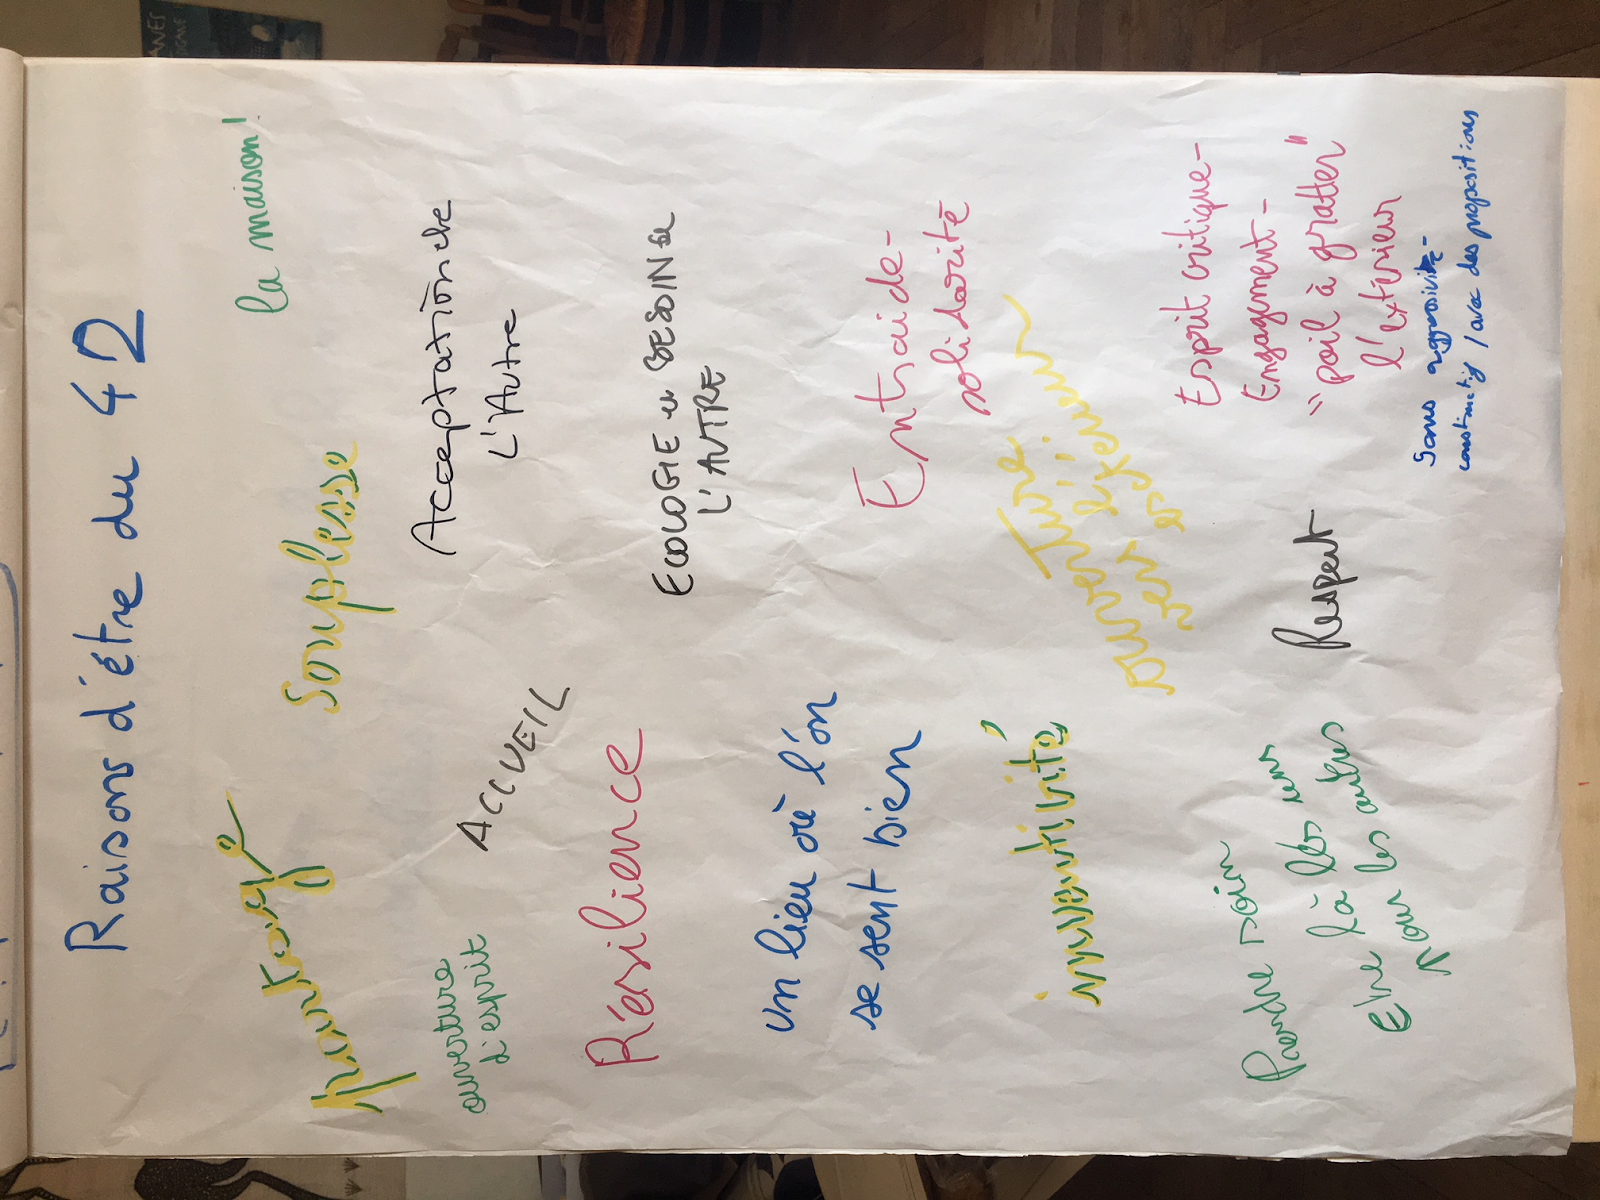 Raisons d'être du 42
la maison!
partage
Souplesse
ouverture
d'esprit
ACCUEIL
Acceptation de
L'Autre
Résilience
ECOLOGIE
BESOIN de
L'AUTRE
un lieu où l'on
se sent bien
Entraide-
solidarité
inventivité
ouverture
vers l'extérieur
Prendre soin
les uns
Etre là
Pour les autres
Respect
Esprit critique-
Engagement-
"poil à gratter"
l'extérieur
Sans agressivité-
constructif / avec des propositions